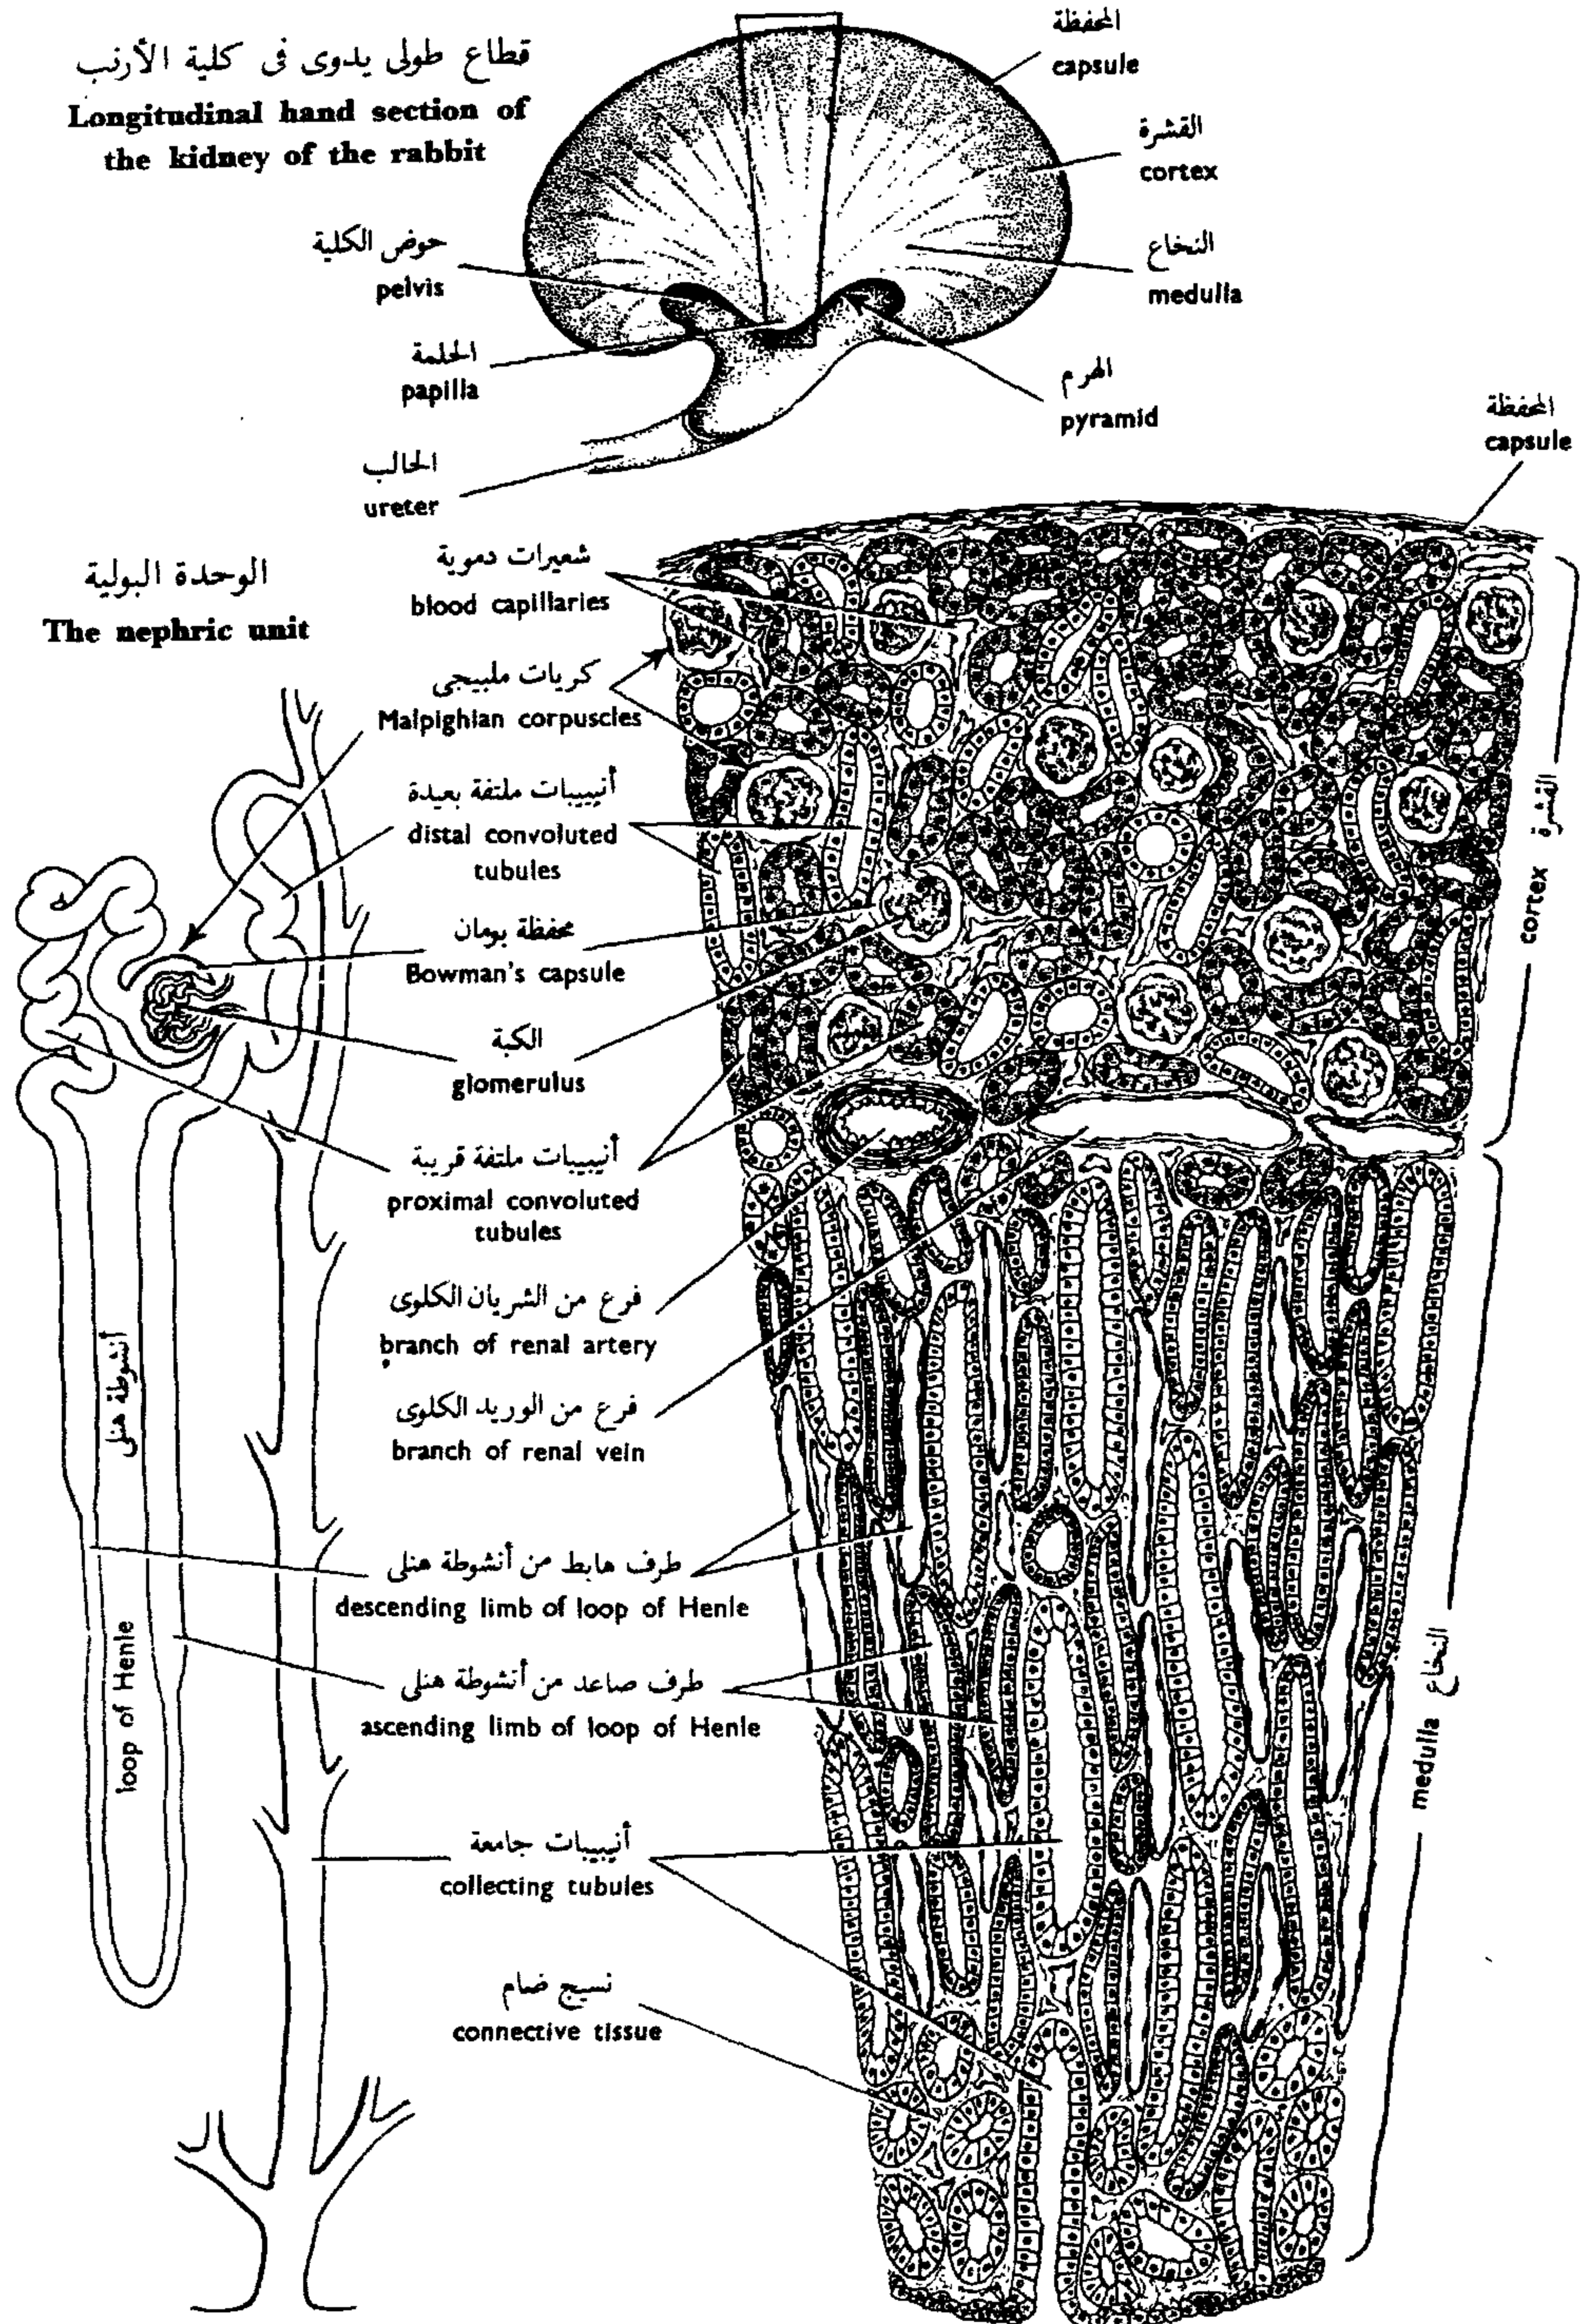 قطاع طولى يدوى فى كلية الأرنب
Longitudinal hand section of
the kidney of the rabbit
المحفظة
capsule
القشرة
cortex
النخاع
medulla
حوض الكلية
pelvis
الحلمة
papilla
الهرم
pyramid
الحالب
ureter
المحفظة
capsule
الوحدة البولية
The nephric unit
شعيرات دموية
blood capillaries
كريات ملبيجى
Malpighian corpuscles
أنيبيبات ملتفة بعيدة
distal convoluted
tubules
محفظة بومان
Bowman's capsule
الكبة
glomerulus
أنيبيبات ملتفة قريبة
proximal convoluted
tubules
فرع من الشريان الكلوى
branch of renal artery
فرع من الوريد الكلوى
branch of renal vein
طرف هابط من أنشوطة هنلى
descending limb of loop of Henle
طرف صاعد من أنشوطة هنلى
ascending limb of loop of Henle
أنيبيبات جامعة
collecting tubules
نسيج ضام
connective tissue
أنشوطة هنلى
loop of Henle
القشرة
cortex
النخاع
medulla